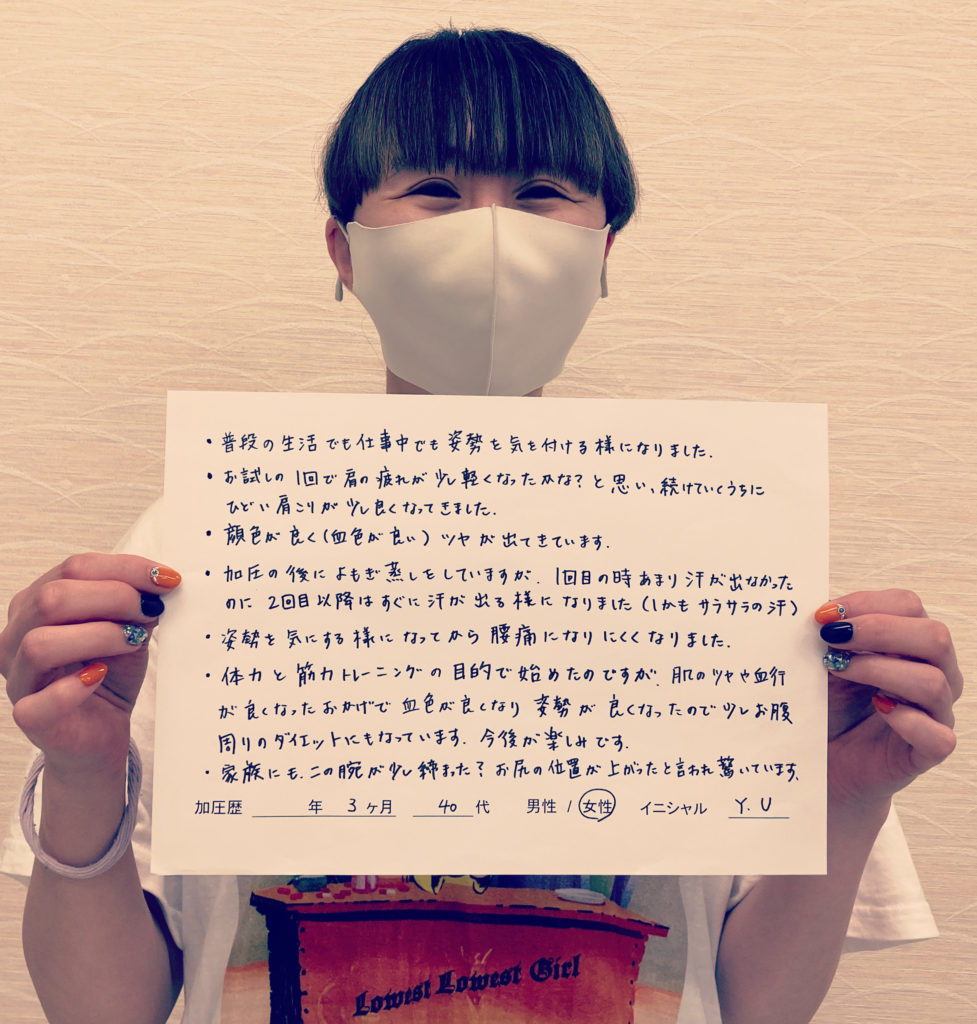 ・普段の生活でも仕事中でも姿勢を気を付ける様になりました.
・お試しの1回で肩の疲れが少し軽くなったかな?と思い、続けていくうちに
ひどい肩こりが少し良くなってきました.
・顔色が良く(血色が良い)ツヤが出てきています.
・加圧の後によもぎ蒸しをしていますが、1回目の時あまり汗が出なかった
のに2回目以降はすぐに汗が出る様になりました(しかもサラサラの汗)
・姿勢を気にする様になってから腰痛になりにくくなりました.
・体力と筋力トレーニングの目的で始めたのですが、肌のツヤや血行
が良くなったおかげで血色が良くなり姿勢が良くなったので少しお腹
周りのダイエットにもなっています. 今後が楽しみです.
・家族にも、二の腕が少し締まった?お尻の位置が上がったと言われ驚いています.
加圧歴 年 3ヶ月 40代 男性 / 女性 イニシャル Y.U
Lowest Lowest Girl